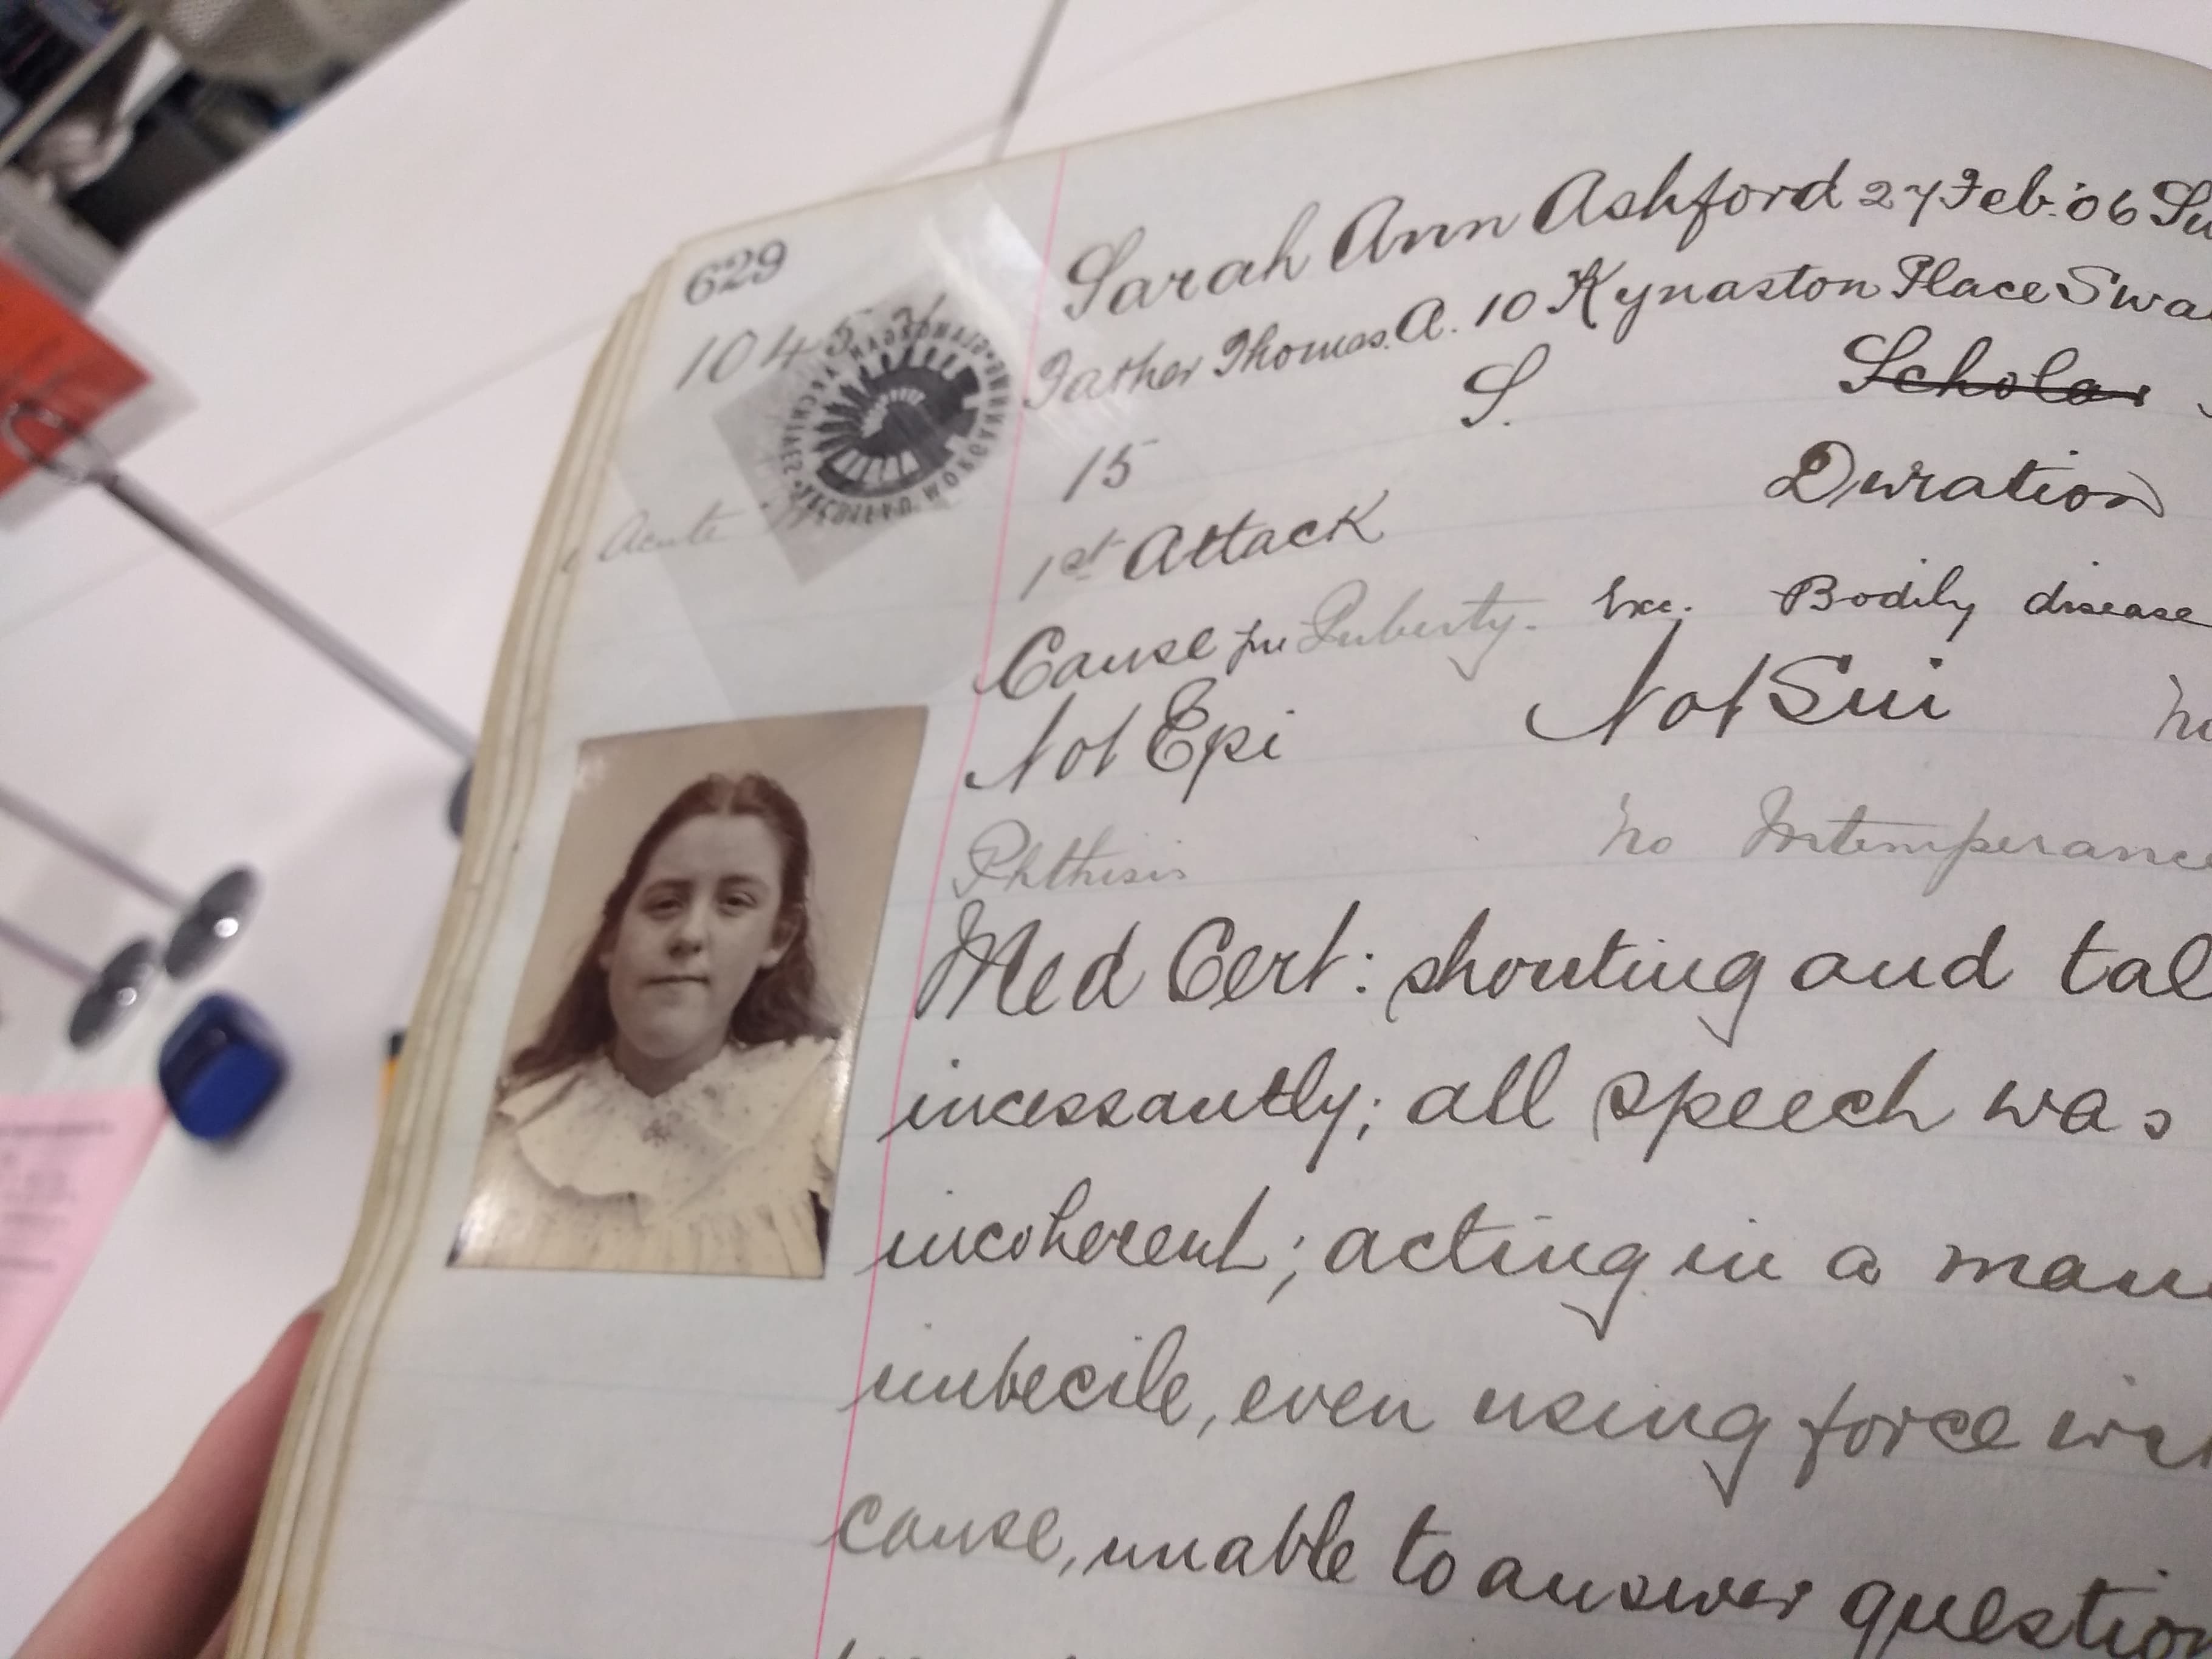 629
Sarah Ann Ashford 27 Feb. '06 Su
1045
Father Thomas. A. 10 Kynaston Place Swa
S. Scholar
15 Duration
Acute
1st Attack
Cause pre Puberty. Exc. Bodily disease
Not Epi Not Sui
Phthisis no Intemperance
Med Cert: shouting and tal
incessantly; all speech was
incoherent; acting in a man
imbecile, even using force wit
cause, unable to answer question